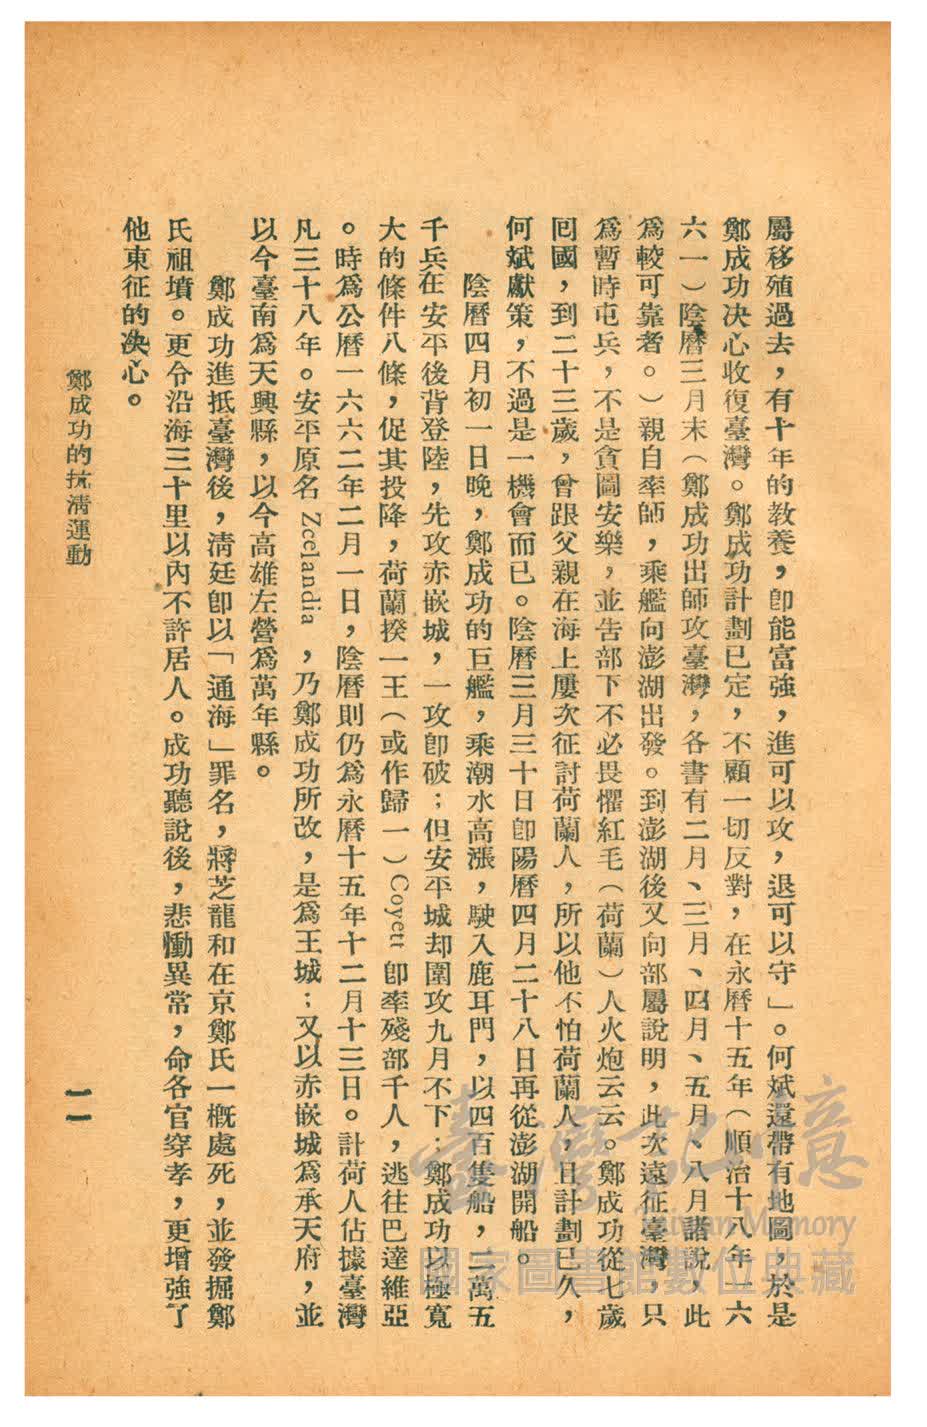 屬移殖過去，有十年的教養，卽能富強，進可以攻，退可以守」。何斌還帶有地圖，於是
鄭成功決心收復臺灣。鄭成功計劃已定，不顧一切反對，在永曆十五年（順治十八年一六
六一）陰曆三月末（鄭成功出師攻臺灣，各書有二月、三月、四月、五月、八月諸說，此
爲較可靠者。）親自率師，乘艦向澎湖出發。到澎湖後又向部屬說明，此次遠征臺灣，只
爲暫時屯兵，不是貪圖安樂，並告部下不必畏懼紅毛（荷蘭）人火炮云云。鄭成功從七歲
囘國，到二十三歲，曾跟父親在海上屢次征討荷蘭人，所以他不怕荷蘭人，且計劃已久，
何斌獻策，不過是一機會而已。陰曆三月三十日卽陽曆四月二十八日再從澎湖開船。
陰曆四月初一日晚，鄭成功的巨艦，乘潮水高漲，駛入鹿耳門，以四百隻船，二萬五
千兵在安平後背登陸，先攻赤嵌城，一攻卽破；但安平城却圍攻九月不下；鄭成功以極寬
大的條件八條，促其投降，荷蘭揆一王（或作歸一）Coyett 卽率殘部千人，逃往巴達維亞
。時爲公曆一六六二年二月一日，陰曆則仍爲永曆十五年十二月十三日。計荷人佔據臺灣
凡三十八年。安平原名 Zeelandia ，乃鄭成功所改，是爲王城；又以赤嵌城爲承天府，並
以今臺南爲天興縣，以今高雄左營爲萬年縣。
鄭成功進抵臺灣後，淸廷卽以「通海」罪名，將芝龍和在京鄭氏一槪處死，並發掘鄭
氏祖墳。更令沿海三十里以內不許居人。成功聽說後，悲慟異常，命各官穿孝，更增強了
他東征的決心。
鄭成功的抗淸運動
一一
臺灣記憶
Taiwan Memory
國家圖書館數位典藏